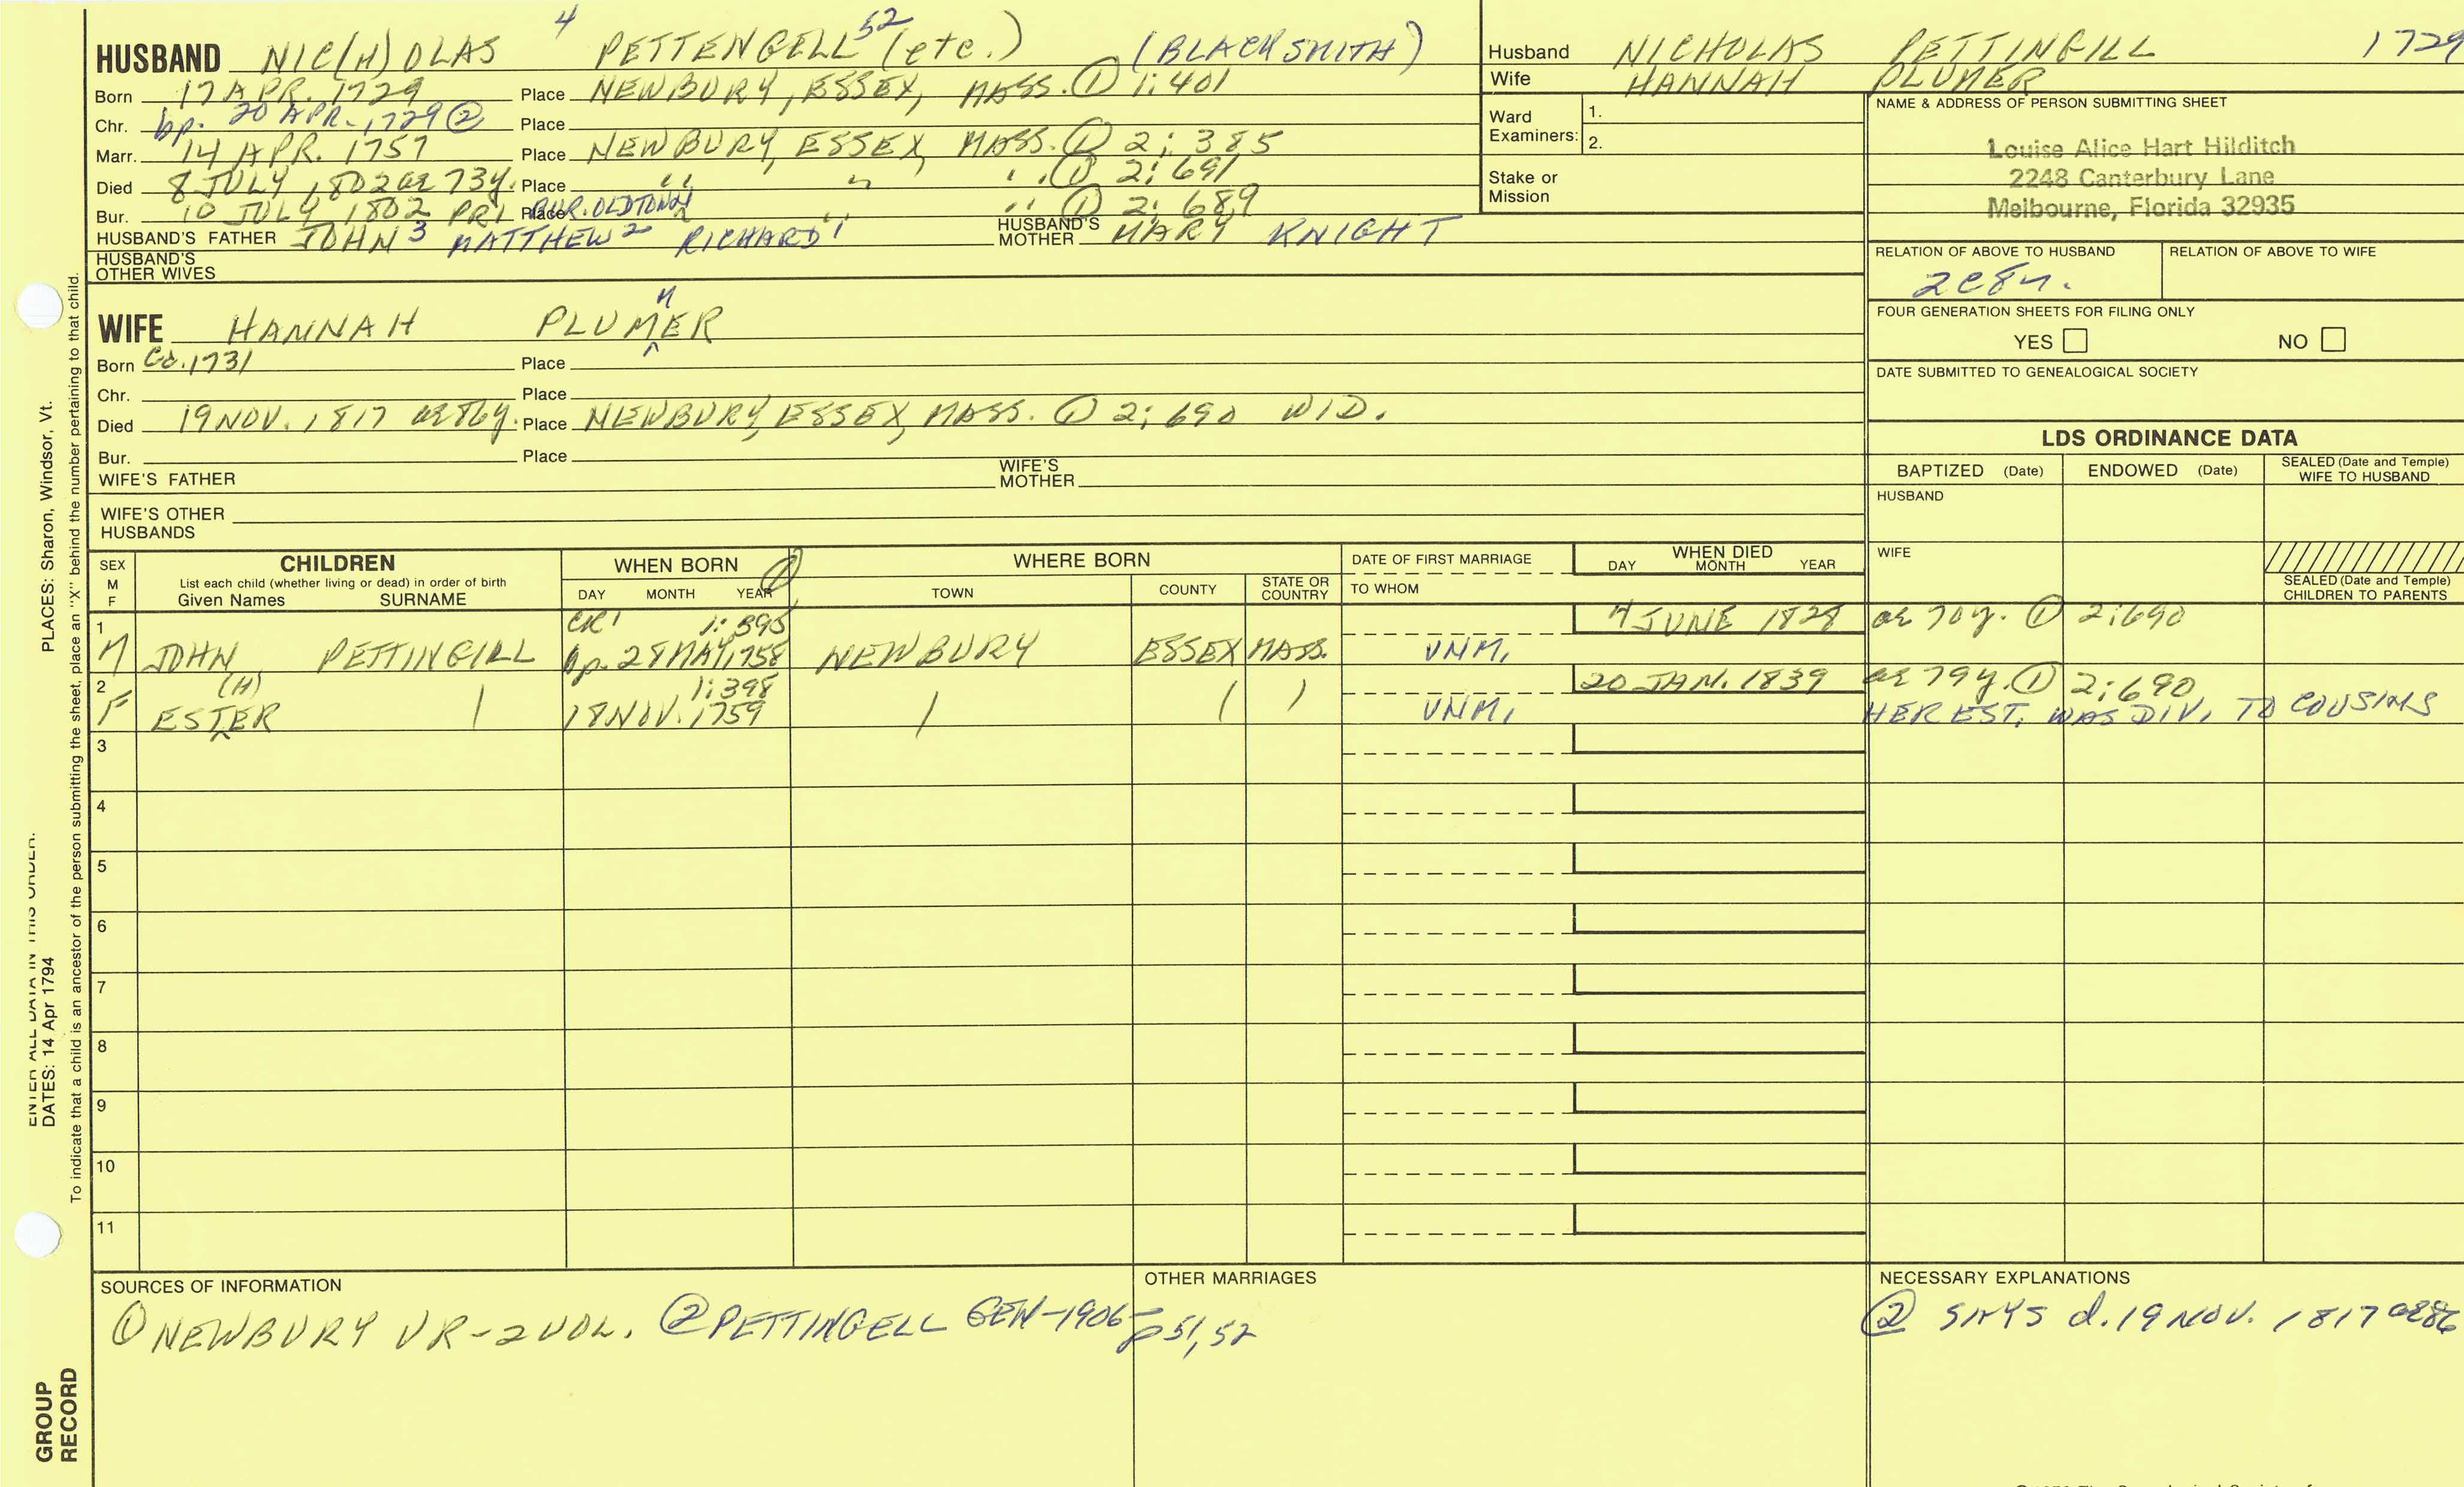 HUSBAND NIC(H)OLAS 4 PETTENGELL 52 (etc.) (BLACKSMITH)
Born 17 APR. 1729 Place NEWBURY, ESSEX, MASS. ① 1:401
Chr. bp. 20 APR. 1729 ② Place
Marr. 14 APR. 1757 Place NEWBURY, ESSEX, MASS. ① 2:385
Died 8 JULY 1802 ae 73y. Place " " " ① 2:691
Bur. 10 JULY 1802 PR1 Place BUR. OLDTOWN " " ① 2:689
HUSBAND'S FATHER JOHN 3 MATTHEW 2 RICHARD 1 HUSBAND'S MOTHER MARY KNIGHT
HUSBAND'S OTHER WIVES
Husband NICHOLAS PETTINGILL 1729
Wife HANNAH PLUMER
Ward Examiners: 1.
2.
Stake or Mission
NAME & ADDRESS OF PERSON SUBMITTING SHEET
Louise Alice Hart Hilditch
2248 Canterbury Lane
Melbourne, Florida 32935
RELATION OF ABOVE TO HUSBAND RELATION OF ABOVE TO WIFE
FOUR GENERATION SHEETS FOR FILING ONLY
YES NO
DATE SUBMITTED TO GENEALOGICAL SOCIETY
WIFE HANNAH PLUMER
M
Born Ca. 1731 Place
Chr. Place
Died 19 NOV. 1817 ae 86y. Place NEWBURY, ESSEX, MASS. ① 2:690 WID.
Bur. Place
WIFE'S FATHER WIFE'S MOTHER
WIFE'S OTHER HUSBANDS
LDS ORDINANCE DATA
BAPTIZED (Date) ENDOWED (Date) SEALED (Date and Temple) WIFE TO HUSBAND
HUSBAND
WIFE
SEALED (Date and Temple) CHILDREN TO PARENTS
SEX M F CHILDREN WHEN BORN ① WHERE BORN DATE OF FIRST MARRIAGE WHEN DIED
List each child (whether living or dead) in order of birth
Given Names SURNAME DAY MONTH YEAR TOWN COUNTY STATE OR COUNTRY TO WHOM DAY MONTH YEAR
1 CR1 1:395 4 JUNE 1828 ae 70y. ① 2:690
M JOHN PETTINGILL bp. 28 MAY, 1758 NEWBURY ESSEX MASS. UNM.
2 (H) 1:398 20 JAN. 1839 ae 79y. ① 2:690
F ESTER 18 NOV. 1759 UNM. HER EST. WAS DIV. TO COUSINS
3
4
5
6
7
8
9
10
11
SOURCES OF INFORMATION OTHER MARRIAGES NECESSARY EXPLANATIONS
① NEWBURY VR-2 VOL. ② PETTINGELL GEN-1906 p 51, 52
② SAYS d. 19 NOV. 1817 ae 86
PLACES: Sharon, Windsor, Vt.
ENTER ALL DATA IN THIS ORDER:
DATES: 14 Apr 1794
To indicate that a child is an ancestor of the person submitting the sheet, place an "X" behind the number pertaining to that child.
GROUP RECORD